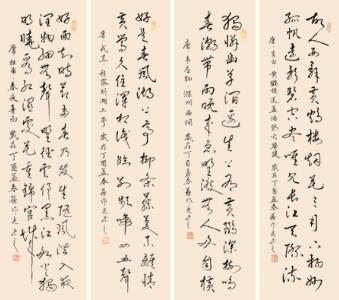 故人西辞黄鹤楼烟花三月下扬州
孤帆远影碧空尽唯见长江天际流
唐李白黄鹤楼送孟浩然之广陵岁在丁酉孟春
独怜幽草涧边生上有黄鹂深树鸣
春潮带雨晚来急野渡无人舟自横
唐韦应物滁州西涧岁在丁酉孟春
好是春风湖上亭柳条藤蔓系离情
黄莺久住浑相识欲别频啼四五声
唐戎昱移家别湖上亭岁在丁酉孟春
好雨知时节当春乃发生随风潜入夜
润物细无声野径云俱黑江船火独
明晓看红湿处花重锦官城
唐杜甫春夜喜雨岁在丁酉孟春